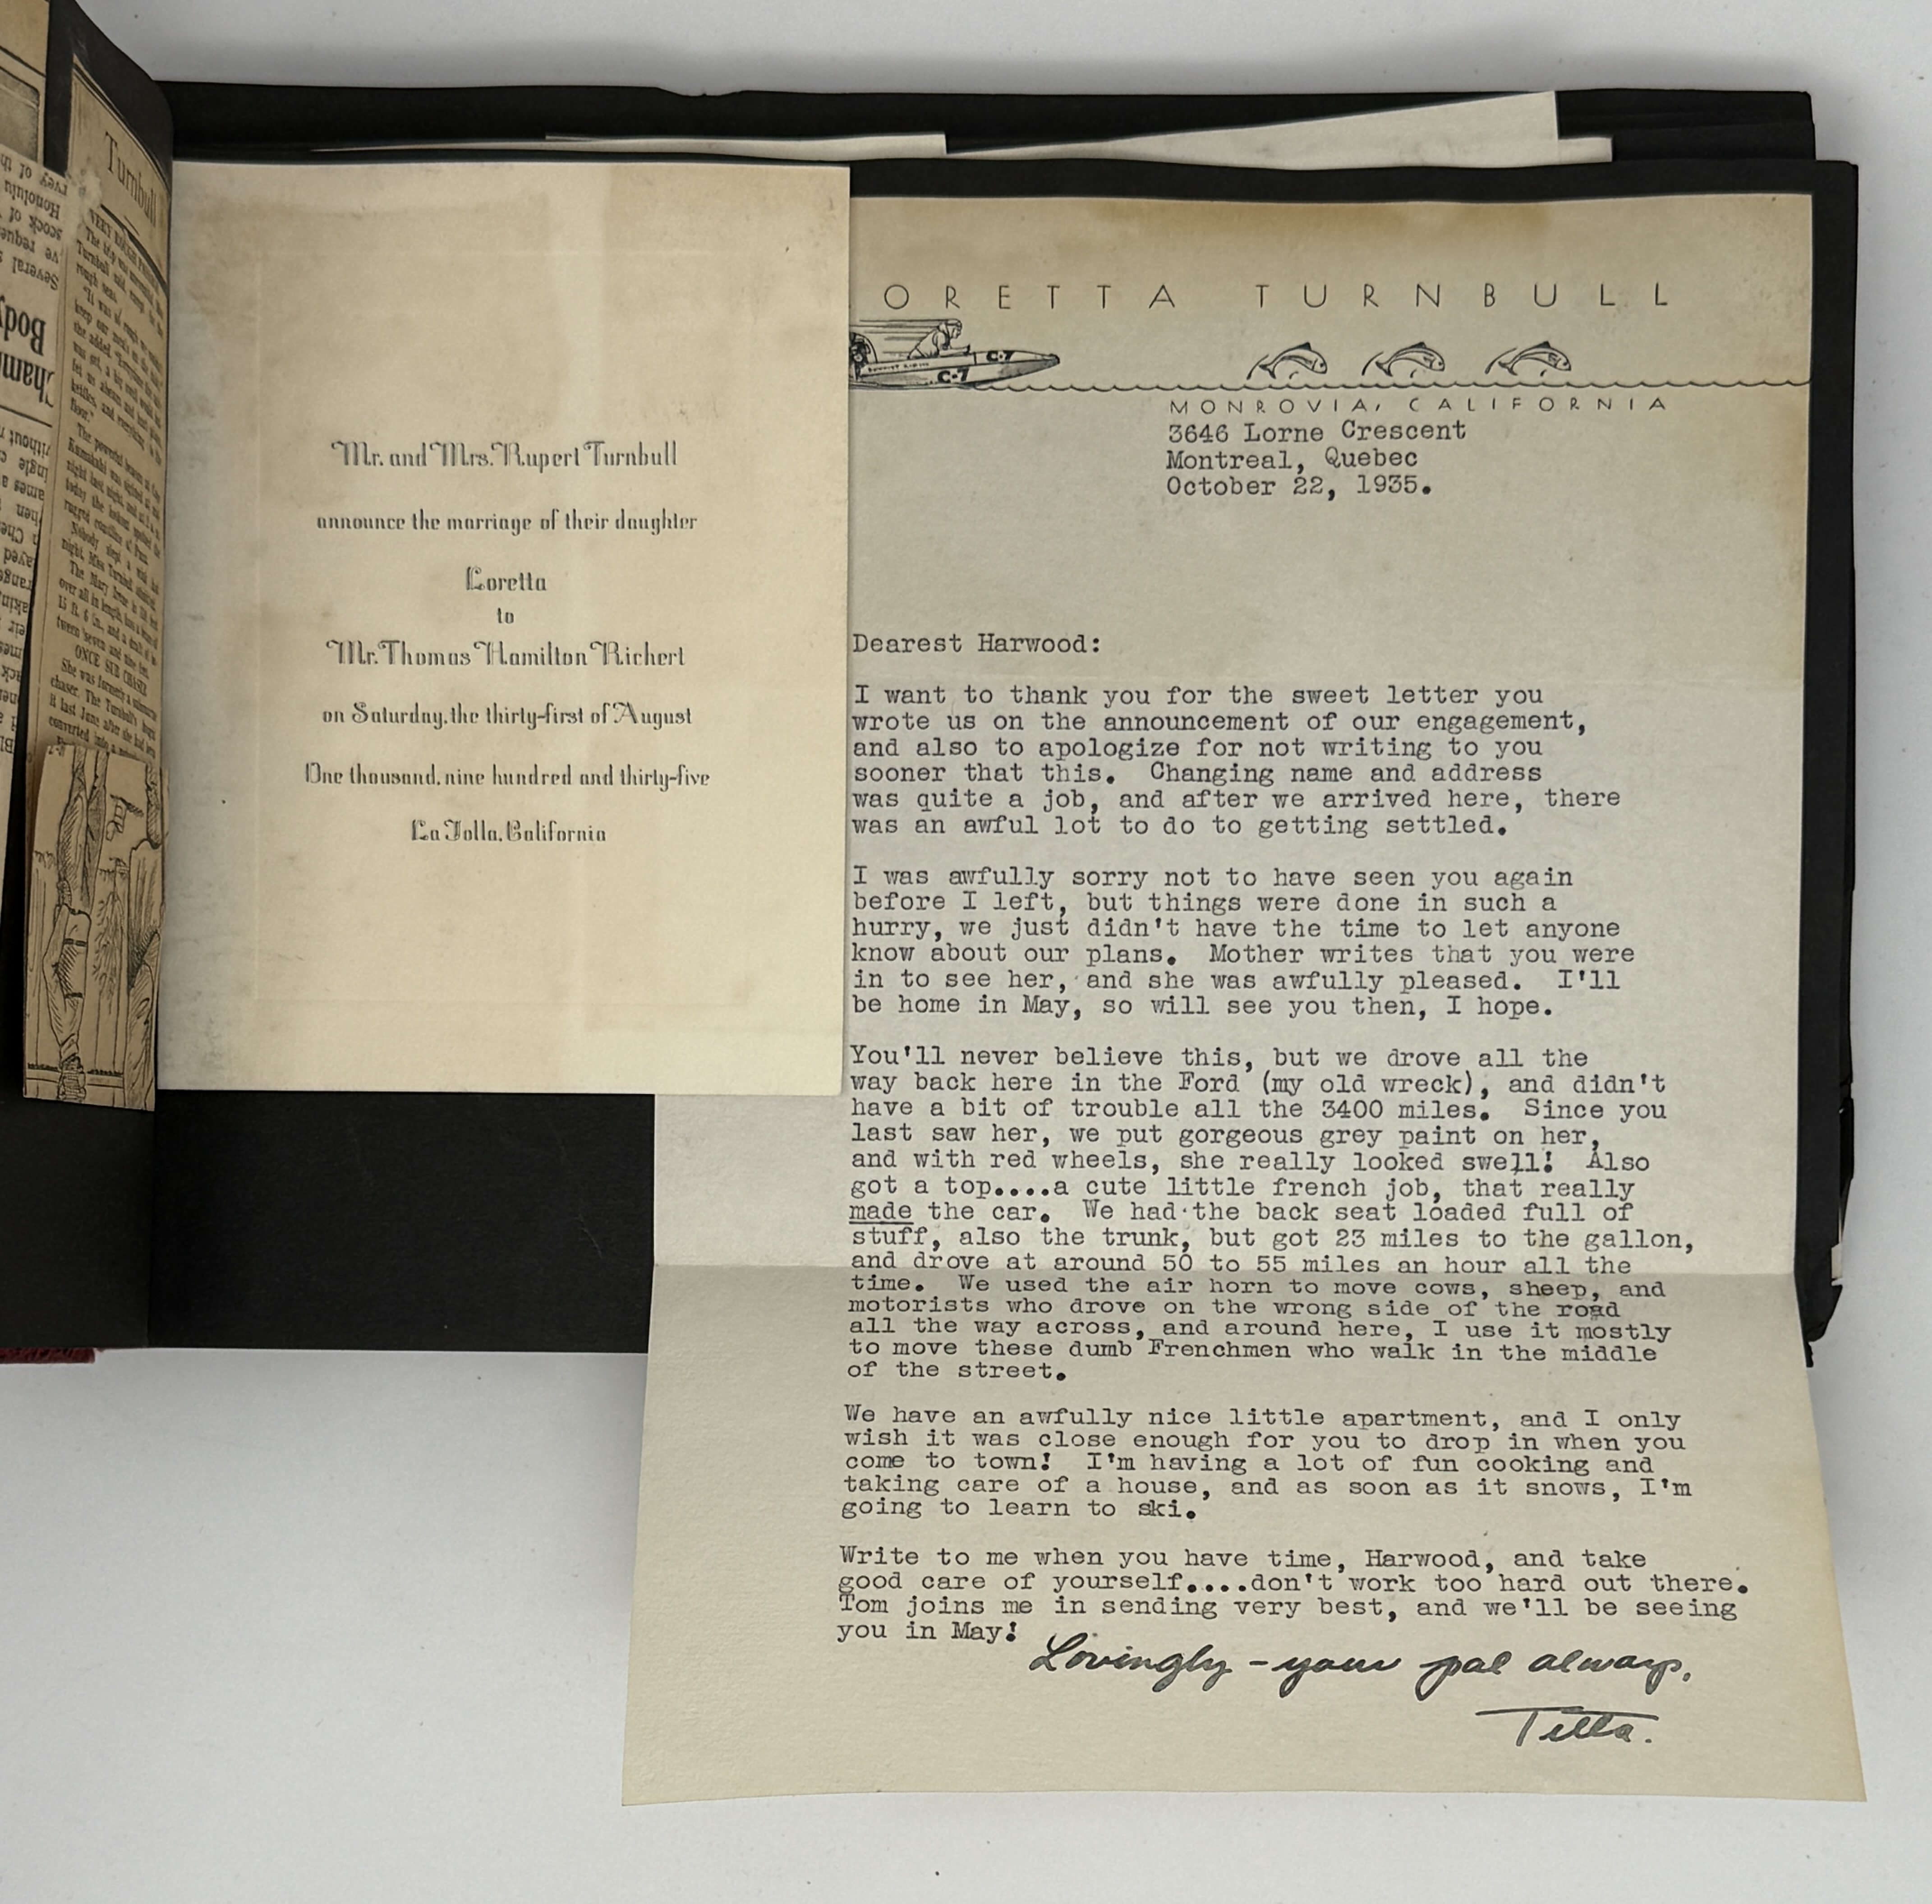 Turnbull
ONCE SUB CHASER
Several
Honolulu
Body
Mr. and Mrs. Rupert Turnbull
announce the marriage of their daughter
Loretta
to
Mr. Thomas Hamilton Richert
on Saturday, the thirty-first of August
One thousand, nine hundred and thirty-five
La Jolla, California
ORETTA TURNBULL
C-7
C-7
MONROVIA, CALIFORNIA
3646 Lorne Crescent
Montreal, Quebec
October 22, 1935.
Dearest Harwood:
I want to thank you for the sweet letter you
wrote us on the announcement of our engagement,
and also to apologize for not writing to you
sooner that this. Changing name and address
was quite a job, and after we arrived here, there
was an awful lot to do to getting settled.
I was awfully sorry not to have seen you again
before I left, but things were done in such a
hurry, we just didn't have the time to let anyone
know about our plans. Mother writes that you were
in to see her, and she was awfully pleased. I'll
be home in May, so will see you then, I hope.
You'll never believe this, but we drove all the
way back here in the Ford (my old wreck), and didn't
have a bit of trouble all the 3400 miles. Since you
last saw her, we put gorgeous grey paint on her,
and with red wheels, she really looked swell! Also
got a top....a cute little french job, that really
made the car. We had the back seat loaded full of
stuff, also the trunk, but got 23 miles to the gallon,
and drove at around 50 to 55 miles an hour all the
time. We used the air horn to move cows, sheep, and
motorists who drove on the wrong side of the road
all the way across, and around here, I use it mostly
to move these dumb Frenchmen who walk in the middle
of the street.
We have an awfully nice little apartment, and I only
wish it was close enough for you to drop in when you
come to town! I'm having a lot of fun cooking and
taking care of a house, and as soon as it snows, I'm
going to learn to ski.
Write to me when you have time, Harwood, and take
good care of yourself....don't work too hard out there.
Tom joins me in sending very best, and we'll be seeing
you in May!
Lovingly - your pal always,
Tetta.